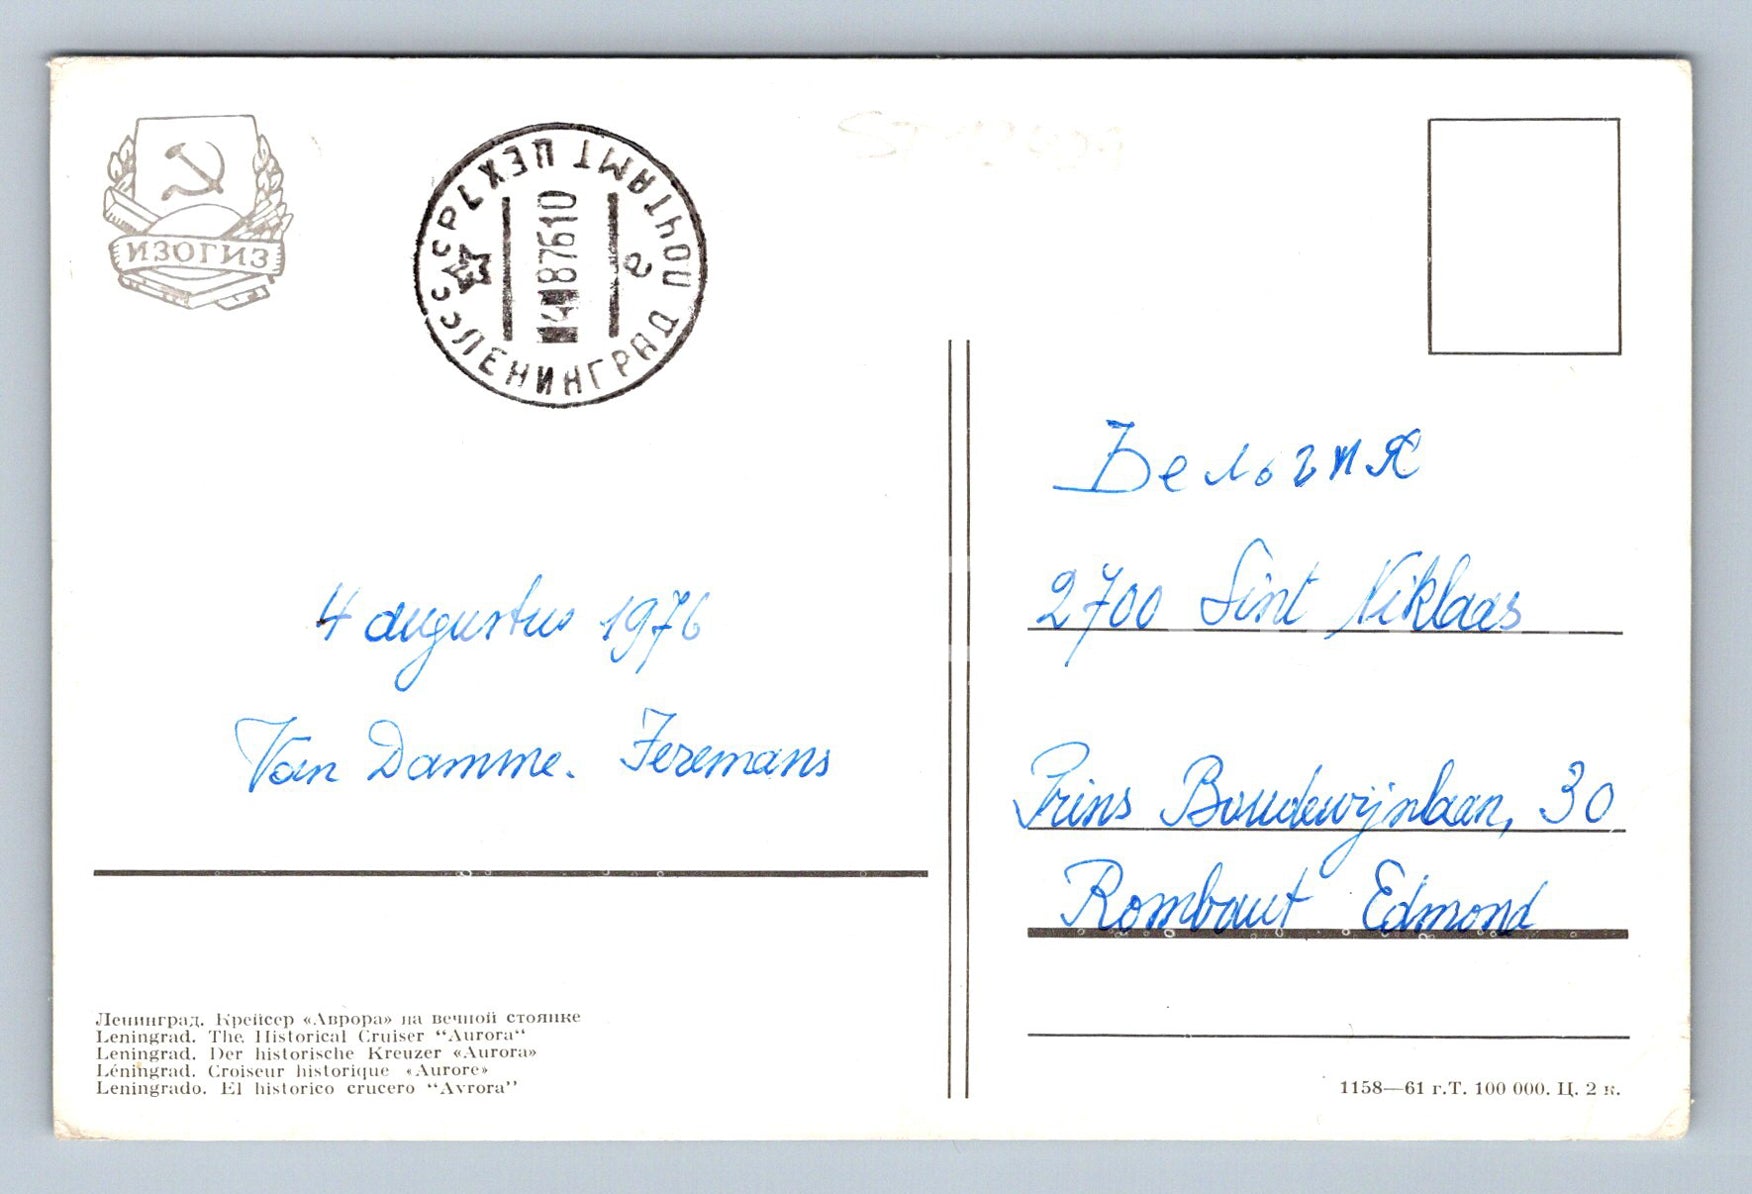 ИЗОГИЗ
СССР ЛЕНИНГРАД ПОЧТАМТ ЦЕХ 1
4 8 76 10
г
Бельгия
2700 Sint Niklaas
4 augustus 1976
Van Damme. Jeremans
Prins Boudewijnlaan, 30
Rombaut Edmond
Ленинград. Крейсер «Аврора» на вечной стоянке
Leningrad. The Historical Cruiser “Aurora“
Leningrad. Der historische Kreuzer «Aurora»
Léningrad. Croiseur historique «Aurore»
Leningrado. El historico crucero “Avrora”
1158—61 г.Т. 100 000. Ц. 2 к.